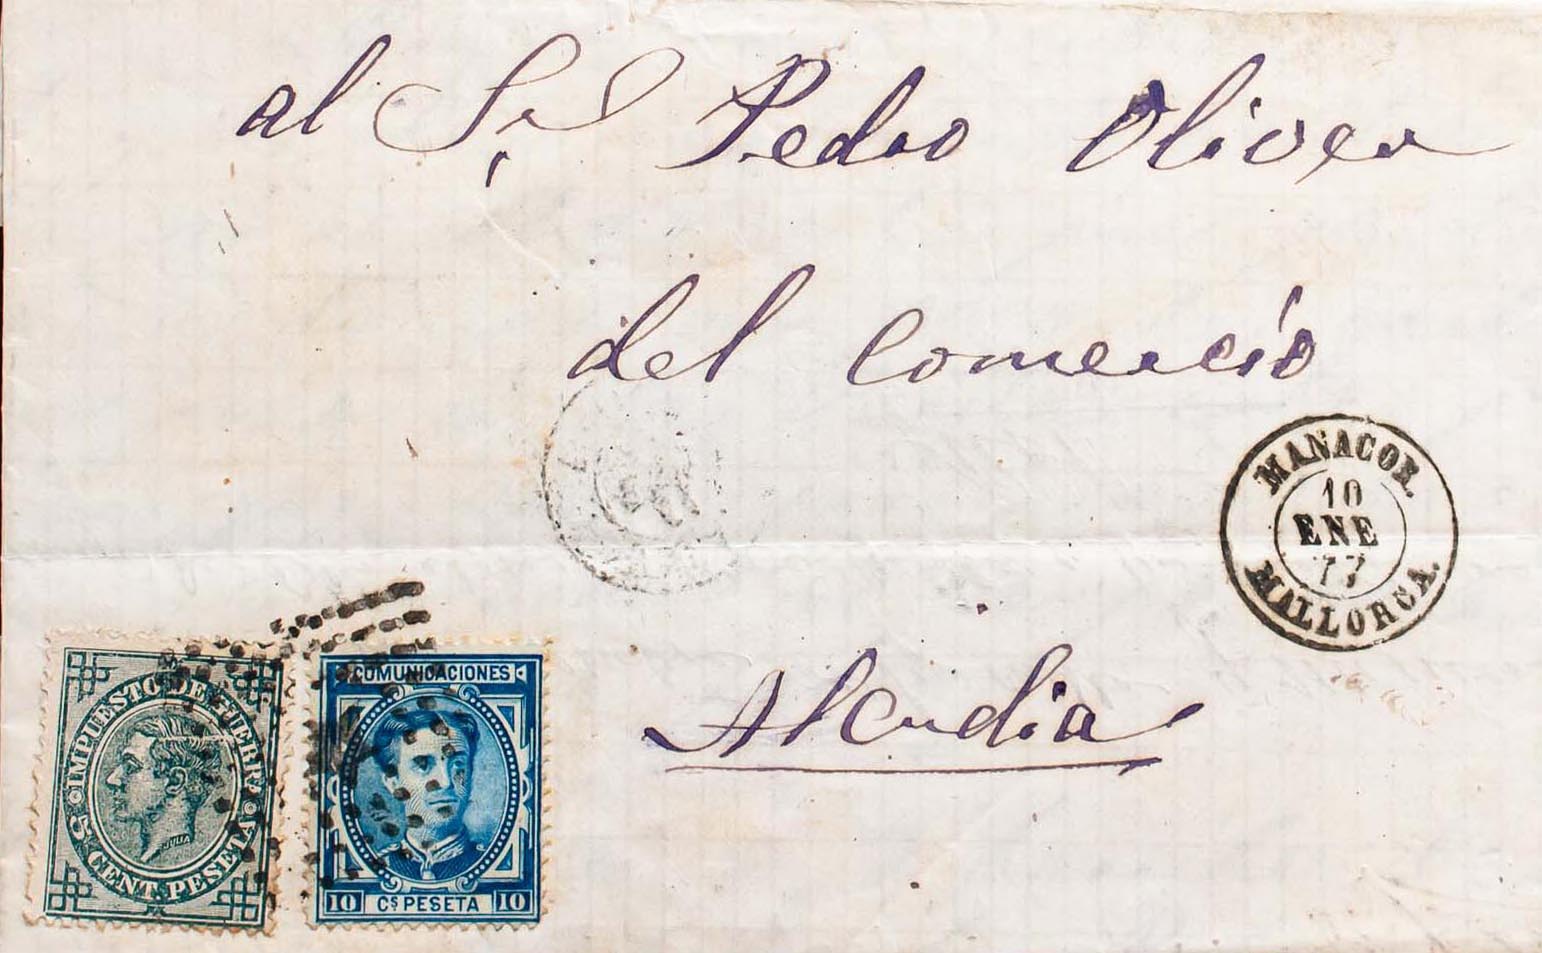 al Sr Pedro Oliver
del Comercio
MANACOR.
10
ENE
77
MALLORCA.
Alcudia
IMPUESTO DE GUERRA
5 CENT. PESETA
JULIA
COMUNICACIONES
10 Cs PESETA 10